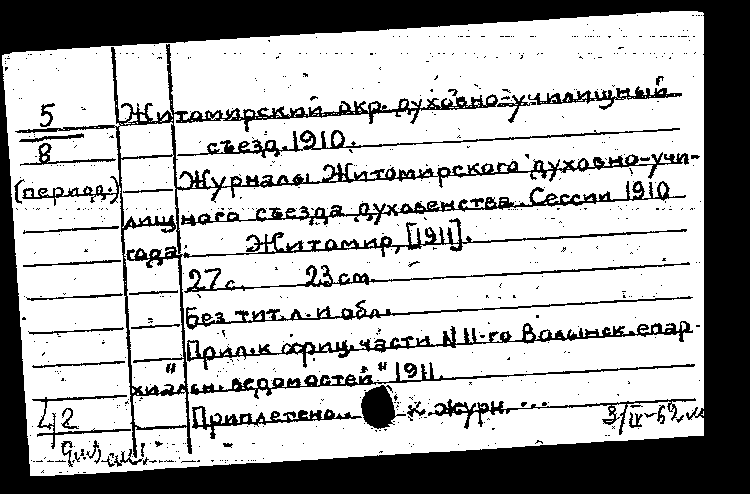 5
8
(период.)
Житомирский окр. духовно-училищный
съезд. 1910.
Журналы Житомирского духовно-учи-
лищного съезда духовенства. Сессии 1910
года. Житомир, [1911].
27 с. 23 см.
Без тит. л. и обл.
Прил. к офиц. части N 11-го Волынск. епар-
хиальн. ведомостей" 1911.
Приплетено.. к журн. ...
42
3/IV-62